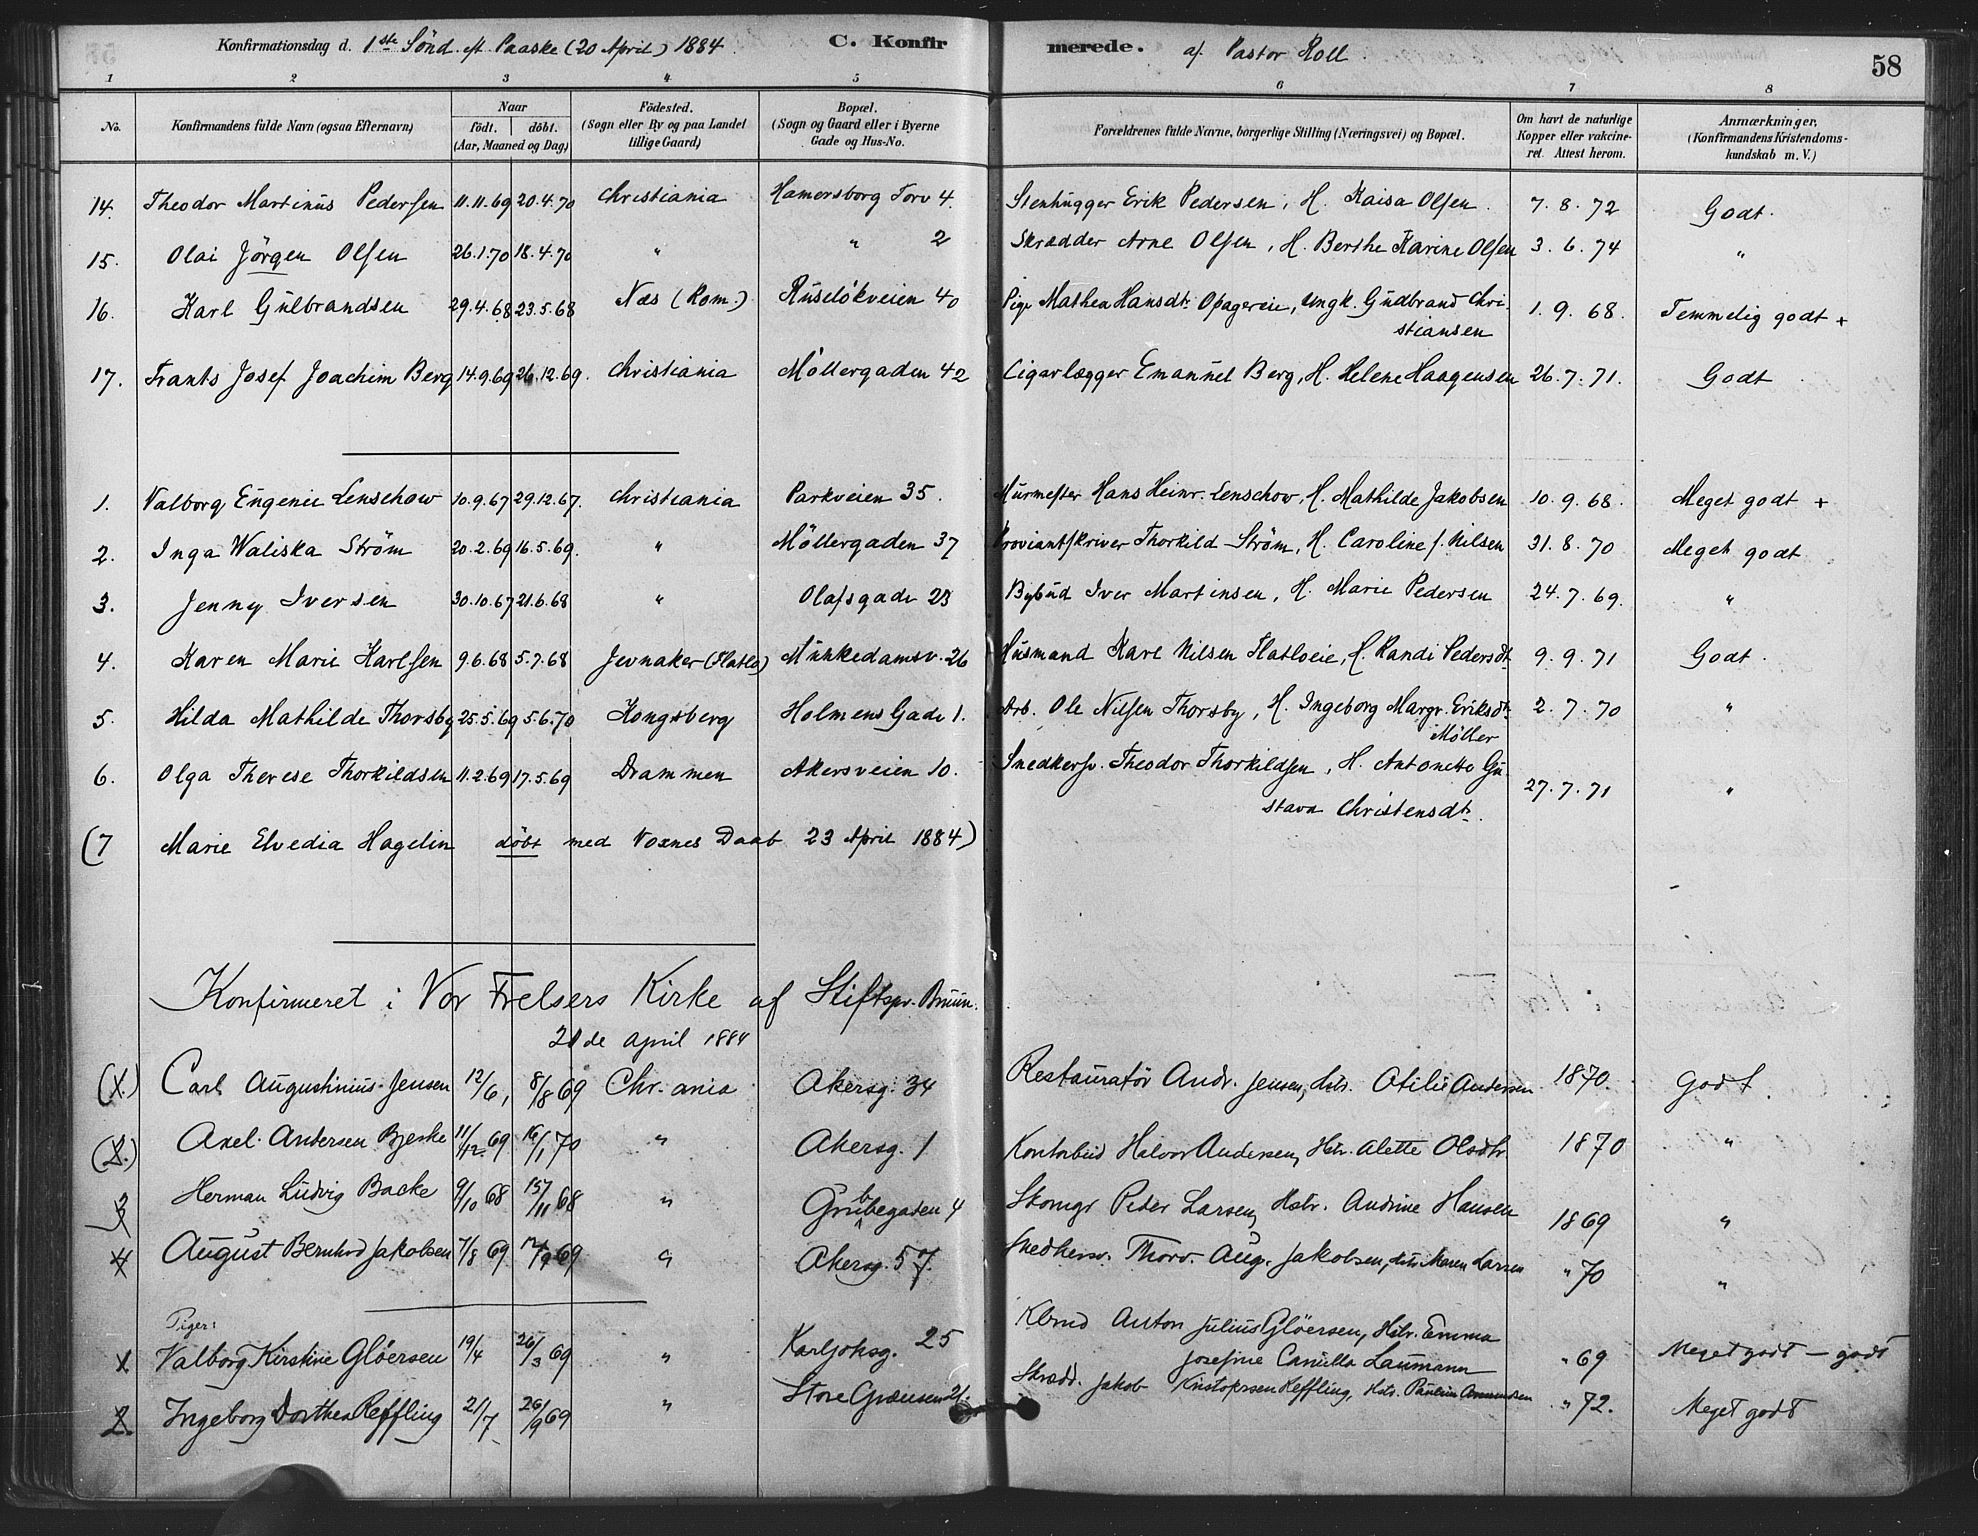 Konfirmationsdag d. 1ste Sönd. eft. Paaske (20 April) 1884. C. Konfirmerede. af Pastor Roll. 58
1 2 3 4 5 6 7 8
No. Konfirmandens fulde Navn (ogsaa Efternavn) Naar födt. döbt. (Aar, Maaned og Dag) Födested. (Sogn eller By og paa Landet tillige Gaard) Bopæl. (Sogn og Gaard eller i Byerne Gade og Hus-No. Forældrenes fulde Navne, borgerlige Stilling (Næringsvei) og Bopæl. Om havt de naturlige Kopper eller vakcineret. Attest herom. Anmærkninger, (Konfirmandens Kristendomskundskab m. V.)
14. Theodor Martinus Pedersen 11.11.69 20.4.70 Christiania Hamersborg Torv 4. Stenhugger Erik Pedersen, H. Kaisa Olsen. 7.8.72 Godt.
15. Olai Jörgen Olsen 26.1.70 18.4.70 " " 2 Skrædder Arne Olsen, H. Berthe Karine Olsen 3.6.74 "
16. Karl Gulbrandsen 29.4.68 23.5.68 Næs (Rom.) Ruselökveien 40 Pige Mathea Hansdt. Opagereie, Ungk. Gudbrand Chri-
stiansen 1.9.68. Temmelig godt +
17. Frants Josef Joachim Berg 14.9.69 26.12.69. Christiania Möllergaden 42 Cigarlægger Emanuel Berg, H. Helene Haagensen 26.7.71. Godt
1. Valborg Eugenie Lenschow 10.9.67 29.12.67. Christiania Parkveien 35. Murmester Hans Heinr. Lenschow, H. Mathilde Jakobsen 10.9.68. Meget godt +
2. Inga Waliska Ström 20.2.69 16.5.69. " Möllergaden 37 Proviantskriver Thorkild Ström, H. Caroline f. Nilsen 31.8.70 Meget godt
3. Jenny Iversen 30.10.67 21.6.68 " Olafsgade 23 Bybud Iver Martinsen, H. Marie Pedersen 24.7.69. "
4. Karen Marie Karlsen 9.6.68 5.7.68 Jevnaker (Flatlo) Munkedamsv. 26 Husmand Karl Nilsen Flatloeie, H. Randi Pedersdt. 9.9.71 Godt.
5. Hilda Mathilde Thorsby 25.5.69 5.6.70 Kongsberg Holmens Gade 1. Arb. Ole Nilsen Thorsby, H. Ingeborg Margr. Eriksdt.
Möller 2.7.70 "
6. Olga Therese Thorkildsen 11.2.69 17.5.69 Drammen Akersveien 10. Snedkersv. Theodor Thorkildsen, H. Antonette Gu-
stava Christensdt. 27.7.71 "
(7 Marie Elvedia Hagelin döbt med Voxnes Daab 23 April 1884)
Konfirmeret i Vor Frelsers Kirke af Stiftspr. Bruun.
21de april 1884
(1.) Carl Augustinius Jensen 12/6, 8/8 69 Chr.ania Akersg. 34 Restauratör Andr. Jensen, Hstr. Otilie Andersen 1870. Godt.
(2.) Axel Andersen Bjerke 11/12 69 16/1 70 " Akersg. 1 Kontorbud Halvor Andersen, Hstr. Alette Olsdtr. 1870 "
3 Herman Ludvig Backe 9/10 68 15/11 68 " Grubbegaden 4 Skomgr Peder Larsen, Hstr. Andrine Hansen 1869 "
4 August Bernhard Jakobsen 7/8 69 12/9 69 " Akersg. 57 Snedkersv. Thorv. Aug. Jakobsen, Hstr Maren Larsen " 70 "
Piger:
1 Valborg Kirstine Glöersen 19/4 26/3 69 " Karljohsg. 25 Kbmd Anton Julius Glöersen, Hstr. Emma
Josefine Camilla Laumann " 69 Meget godt – godt
2. Ingeborg Dorthea Reffling 21/7 26/9 69 " Store Grænsen 21. Skrædd. Jakob Kristofersen Reffling, Hstr. Pauline Amundsen " 72. Meget godt